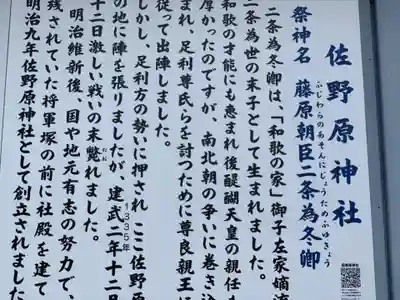 佐野原神社
祭神名 藤原朝臣二条為冬卿
ふじわらのあそんにじょうためふゆきょう
二条為冬卿は、「和歌の家」御子左家嫡流
二条為世の末子として生まれました。
和歌の才能にも恵まれ後醍醐天皇の親任も
厚かったのですが、南北朝の争いに巻き込
まれ、足利尊氏らを討つために尊良親王に
従って出陣しました。
しかし、足利方の勢いに押され、ここ佐野原
の地に陣を張りましたが、建武二年十二月
1335年
十二日激しい戦いの末斃れました。
たお
明治維新後、国や地元有志の努力で、
残されていた将軍塚の前に社殿を建て
明治九年佐野原神社として創立されました